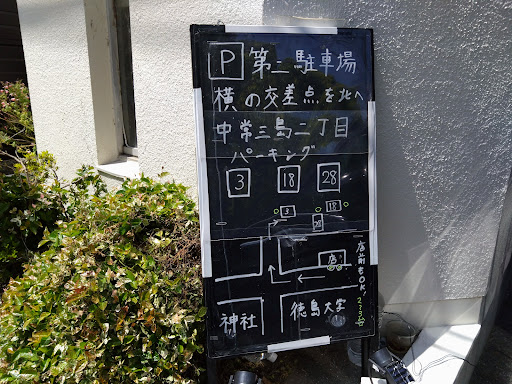 P 第二駐車場
横の交差点を北へ
中常三島二丁目
パーキング
3 18 28
3 18
28
店
店前もOK!
2〜3台
神社 徳島大学